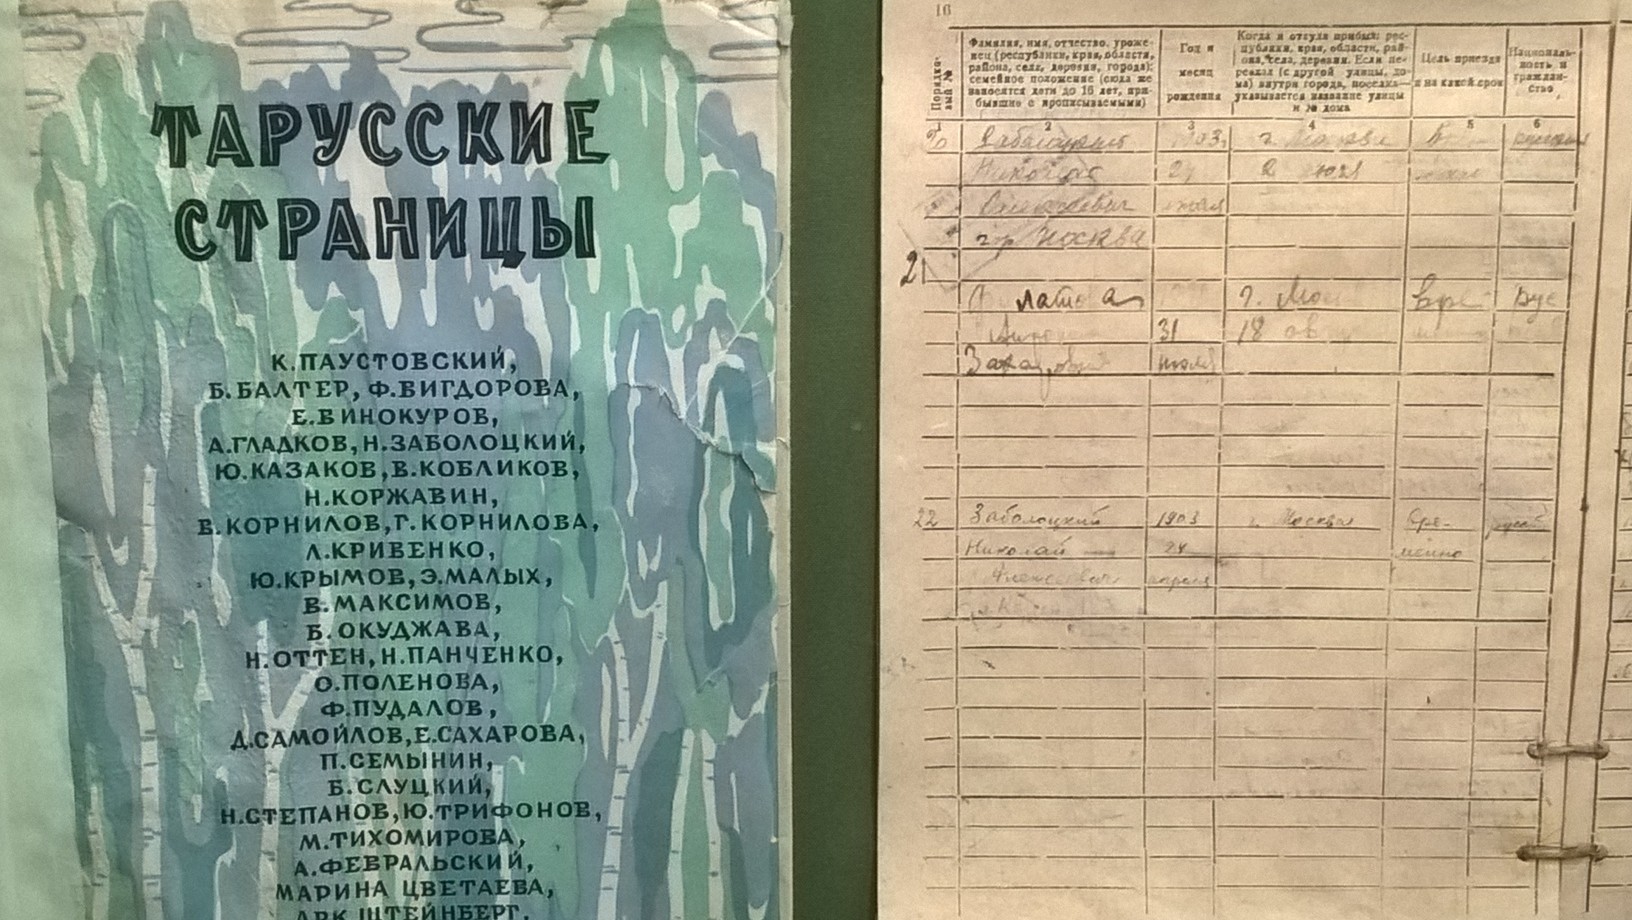 ТАРУССКИЕ
СТРАНИЦЫ
К.ПАУСТОВСКИЙ,
Б.БАЛТЕР, Ф.ВИГДОРОВА,
Е.ВИНОКУРОВ,
А.ГЛАДКОВ, Н.ЗАБОЛОЦКИЙ,
Ю.КАЗАКОВ, В.КОБЛИКОВ,
Н.КОРЖАВИН,
В.КОРНИЛОВ, Г.КОРНИЛОВА,
Л.КРИВЕНКО,
Ю.КРЫМОВ, Э.МАЛЫХ,
В.МАКСИМОВ,
Б.ОКУДЖАВА,
Н.ОТТЕН, Н.ПАНЧЕНКО,
О.ПОЛЕНОВА,
Ф.ПУДАЛОВ,
Д.САМОЙЛОВ, Е.САХАРОВА,
П.СЕМЫНИН,
Б.СЛУЦКИЙ,
Н.СТЕПАНОВ, Ю.ТРИФОНОВ,
М.ТИХОМИРОВА,
А.ФЕВРАЛЬСКИЙ,
МАРИНА ЦВЕТАЕВА,
АРК.ШТЕЙНБЕРГ.
16
Порядковый №
Фамилия, имя, отчество, уроженец (республики, края, области,
района, села, деревни, города);
семейное положение (сюда же
заносятся дети до 16 лет, прибывшие с прописываемыми)
Год и
месяц
рождения
Когда и откуда прибыл: республики, края, области, района, села, деревни. Если переехал (с другой улицы, дома) внутри города, поселка—
указывается название улицы
и № дома
Цель приезда
и на какой срок
Национальность и
гражданство
1 2 3 4 5 6
Николай
гр Москва
21
31
18
22 Заболоцкий 1903 Москва Вре-
Николай 24 менно
Алексеевич апреля